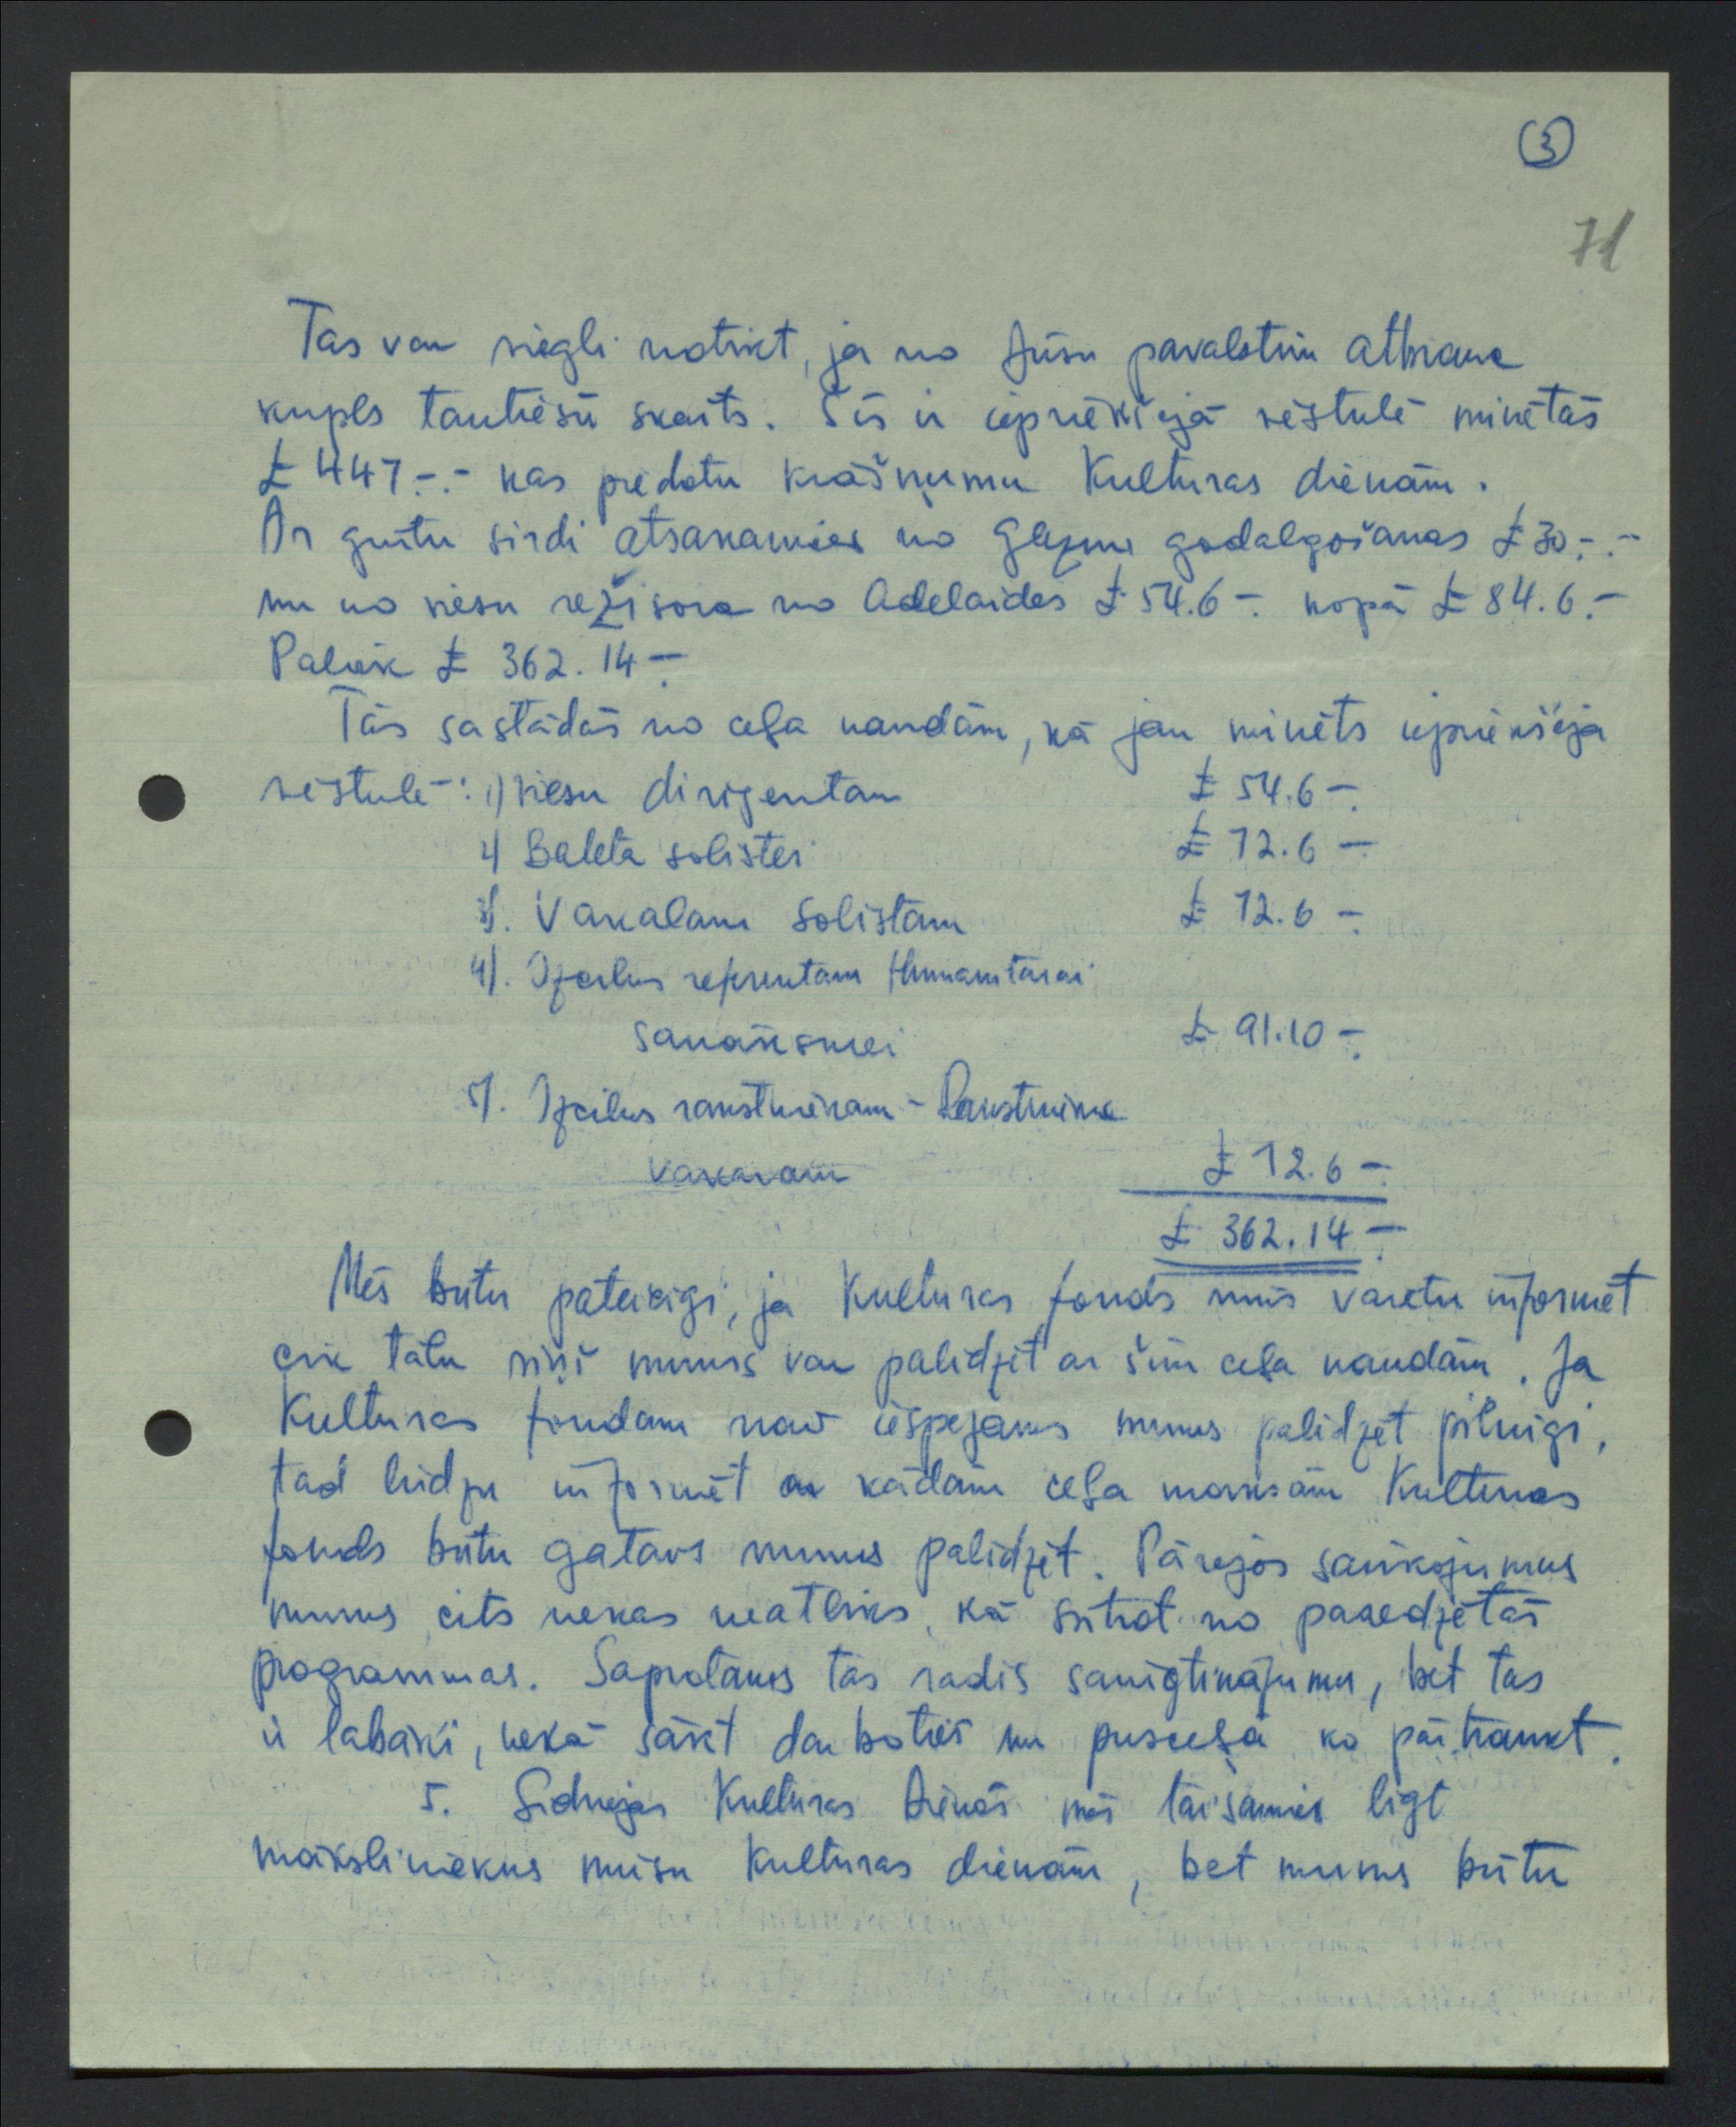 3
71
Tas var viegli notikt, ja no Jūsu pavalstīm atbrauc
kupls tautiešu skaits. Šīs ir iepriekšējā vēstulē minētās
£ 447.-.- kas piedotu krāšņumu Kulturas dienām.
Ar grūtu sirdi atsakamies no Gleznu godalgošanas £ 30.-.-
un no viesu režisora no Adelaides £ 54.6.- kopā £ 84.6.-
Paliek £ 362.14.-
Tās sastādās no ceļa naudām, kā jau minēts iepriekšējā
vēstulē: 1) Viesu dirigentam £ 54.6.-
2) Baleta solistei £ 72.6.-
3). Vokalam solistam £ 72.6.-
4). Izcilus referentam Humanitārai
sanāksmei £ 91.10.-
5). Izcilus rakstniekam - Rakstnieku
vakaram £ 72.6.-
£ 362.14.-
Mēs būtu pateicīgi, ja Kulturas fonds mūs varētu informēt
cik tālu viņš mums var palīdzēt ar šīm ceļa naudām. Ja
Kulturas fondam nav iespējams mums palīdzēt pilnīgi,
tad lūdzu informēt ar kādām ceļa maksām Kulturas
fonds būtu gatavs mums palīdzēt. Pārejos sarīkojumus
mums cits nekas neatliks, kā svītrot no paredzētās
programmas. Saprotams tas radīs sarūgtinājumu, bet tas
ir labāki, nekā sākt darboties un pusceļā ko pārtraukt.
5. Sidnejas Kulturas Dienās mēs taisāmies līgt
māksliniekus mūsu Kulturas dienām, bet mums būtu